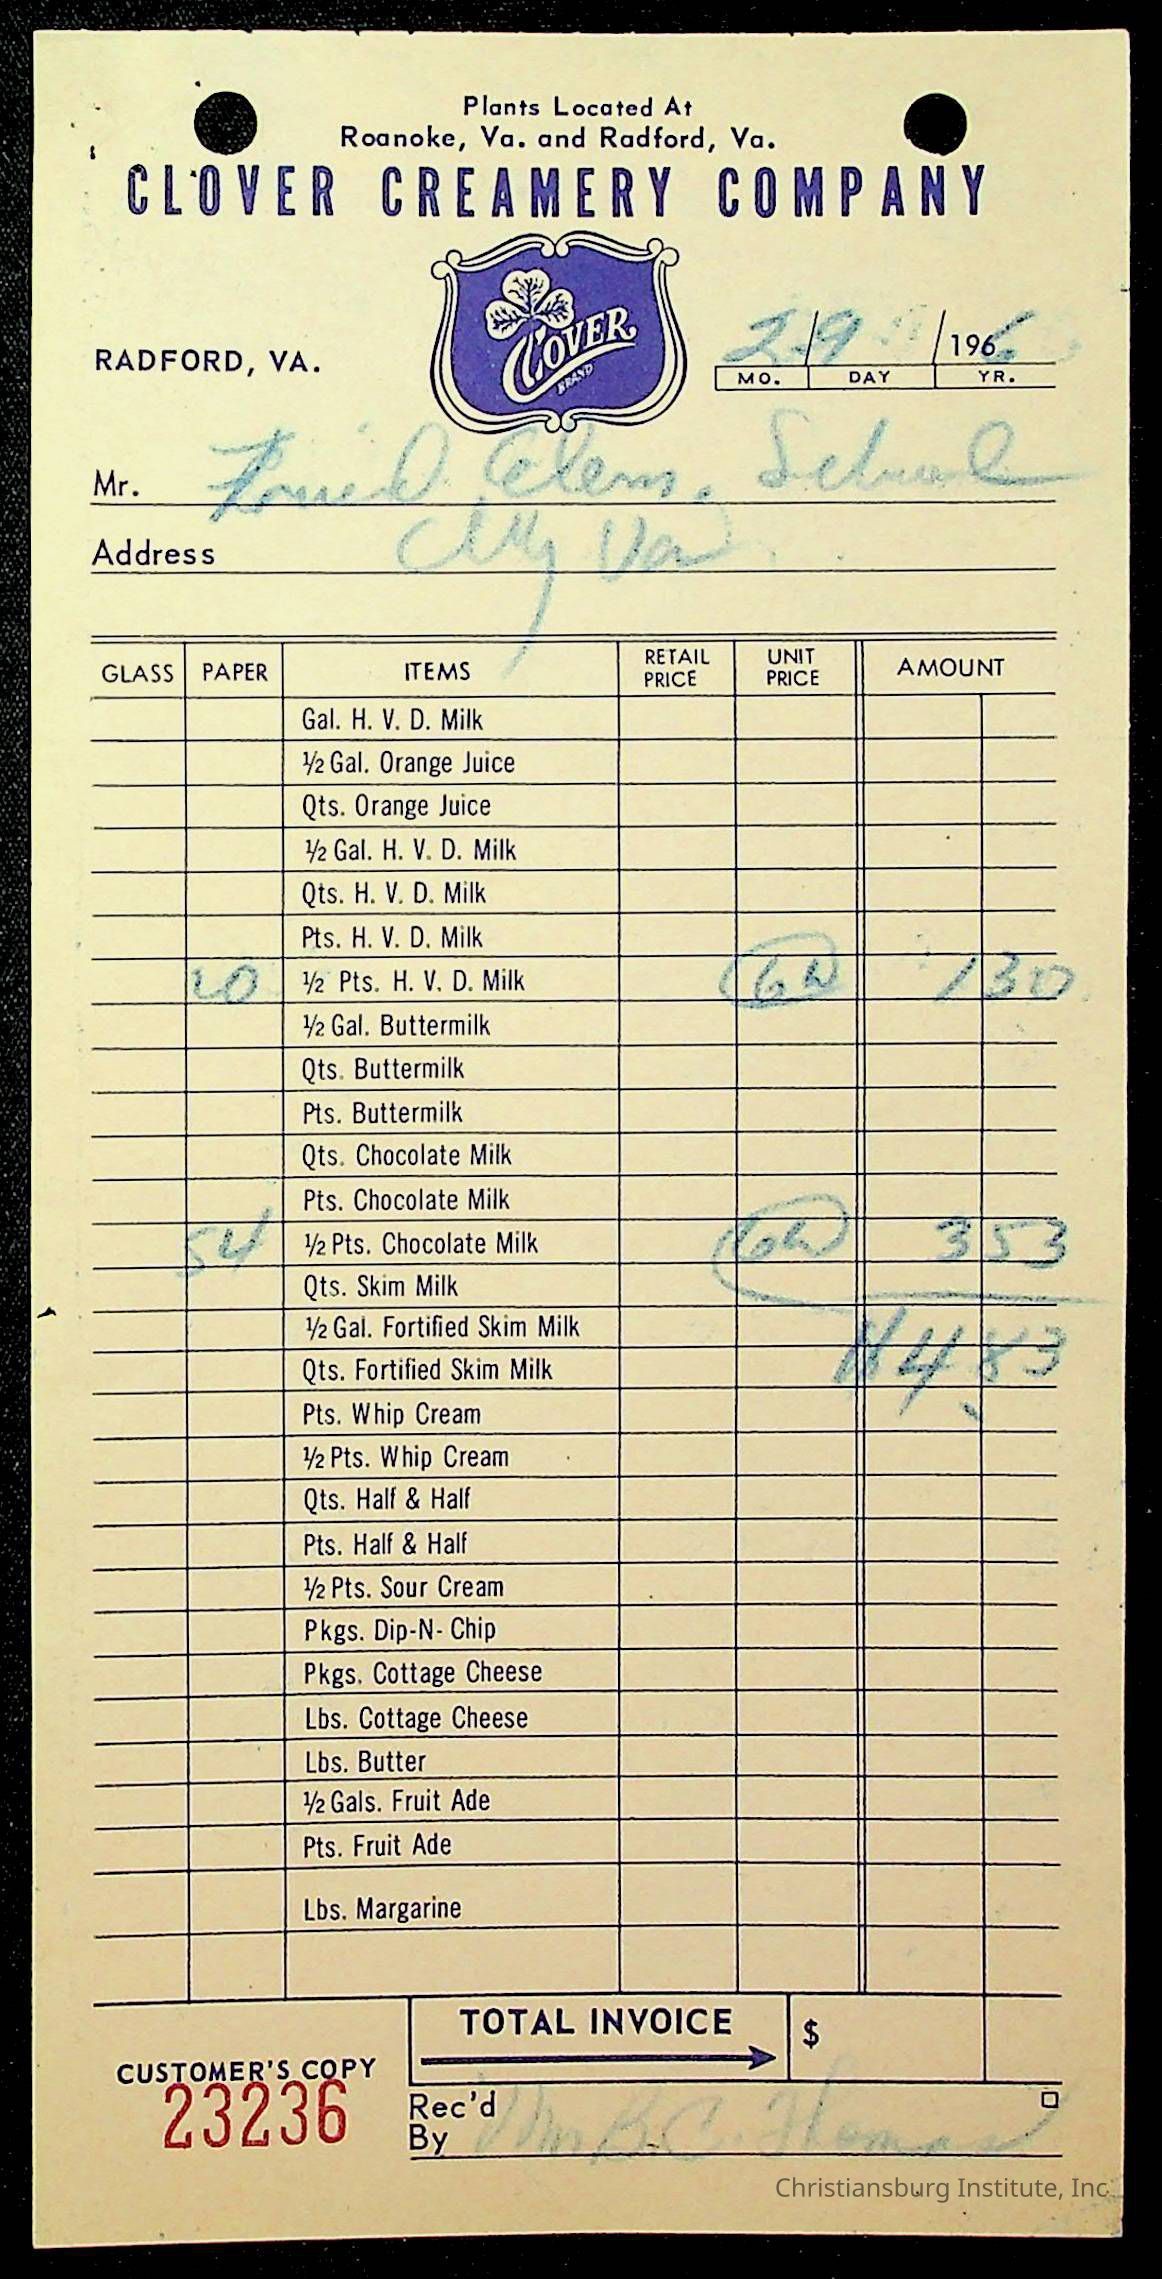 Plants Located At
Roanoke, Va. and Radford, Va.
CLOVER CREAMERY COMPANY
CLOVER
BRAND
RADFORD, VA.
2 9 1966
MO. DAY YR.
Mr. Elem. School
Address
GLASS PAPER ITEMS RETAIL PRICE UNIT PRICE AMOUNT
Gal. H. V. D. Milk
½ Gal. Orange Juice
Qts. Orange Juice
½ Gal. H. V. D. Milk
Qts. H. V. D. Milk
Pts. H. V. D. Milk
20 ½ Pts. H. V. D. Milk 1 30
½ Gal. Buttermilk
Qts. Buttermilk
Pts. Buttermilk
Qts. Chocolate Milk
Pts. Chocolate Milk
54 ½ Pts. Chocolate Milk 3 53
Qts. Skim Milk
½ Gal. Fortified Skim Milk
4 83
Qts. Fortified Skim Milk
Pts. Whip Cream
½ Pts. Whip Cream
Qts. Half & Half
Pts. Half & Half
½ Pts. Sour Cream
Pkgs. Dip-N- Chip
Pkgs. Cottage Cheese
Lbs. Cottage Cheese
Lbs. Butter
½ Gals. Fruit Ade
Pts. Fruit Ade
Lbs. Margarine
TOTAL INVOICE $
CUSTOMER'S COPY
23236
Rec'd By Mrs B.C. Thomas
Christiansburg Institute, Inc